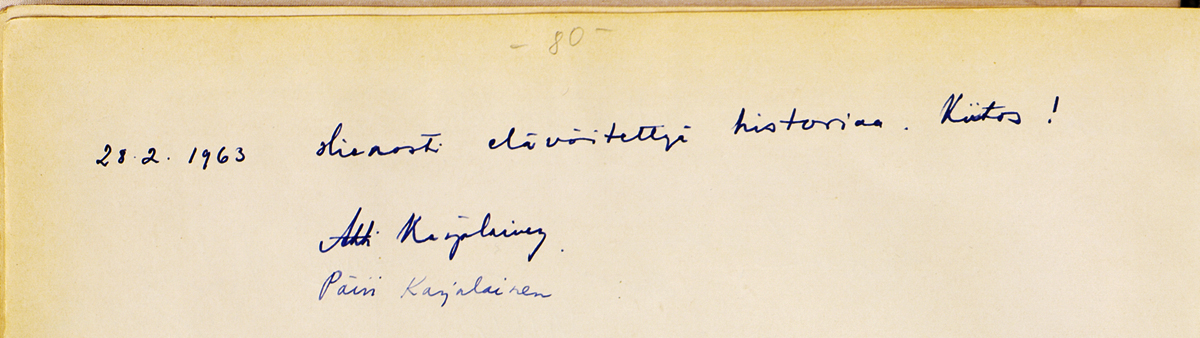 - 80 -
28.2.1963 Hienosti elävöitettyä historiaa. Kiitos!
Ahti Karjalainen
Päivi Karjalainen